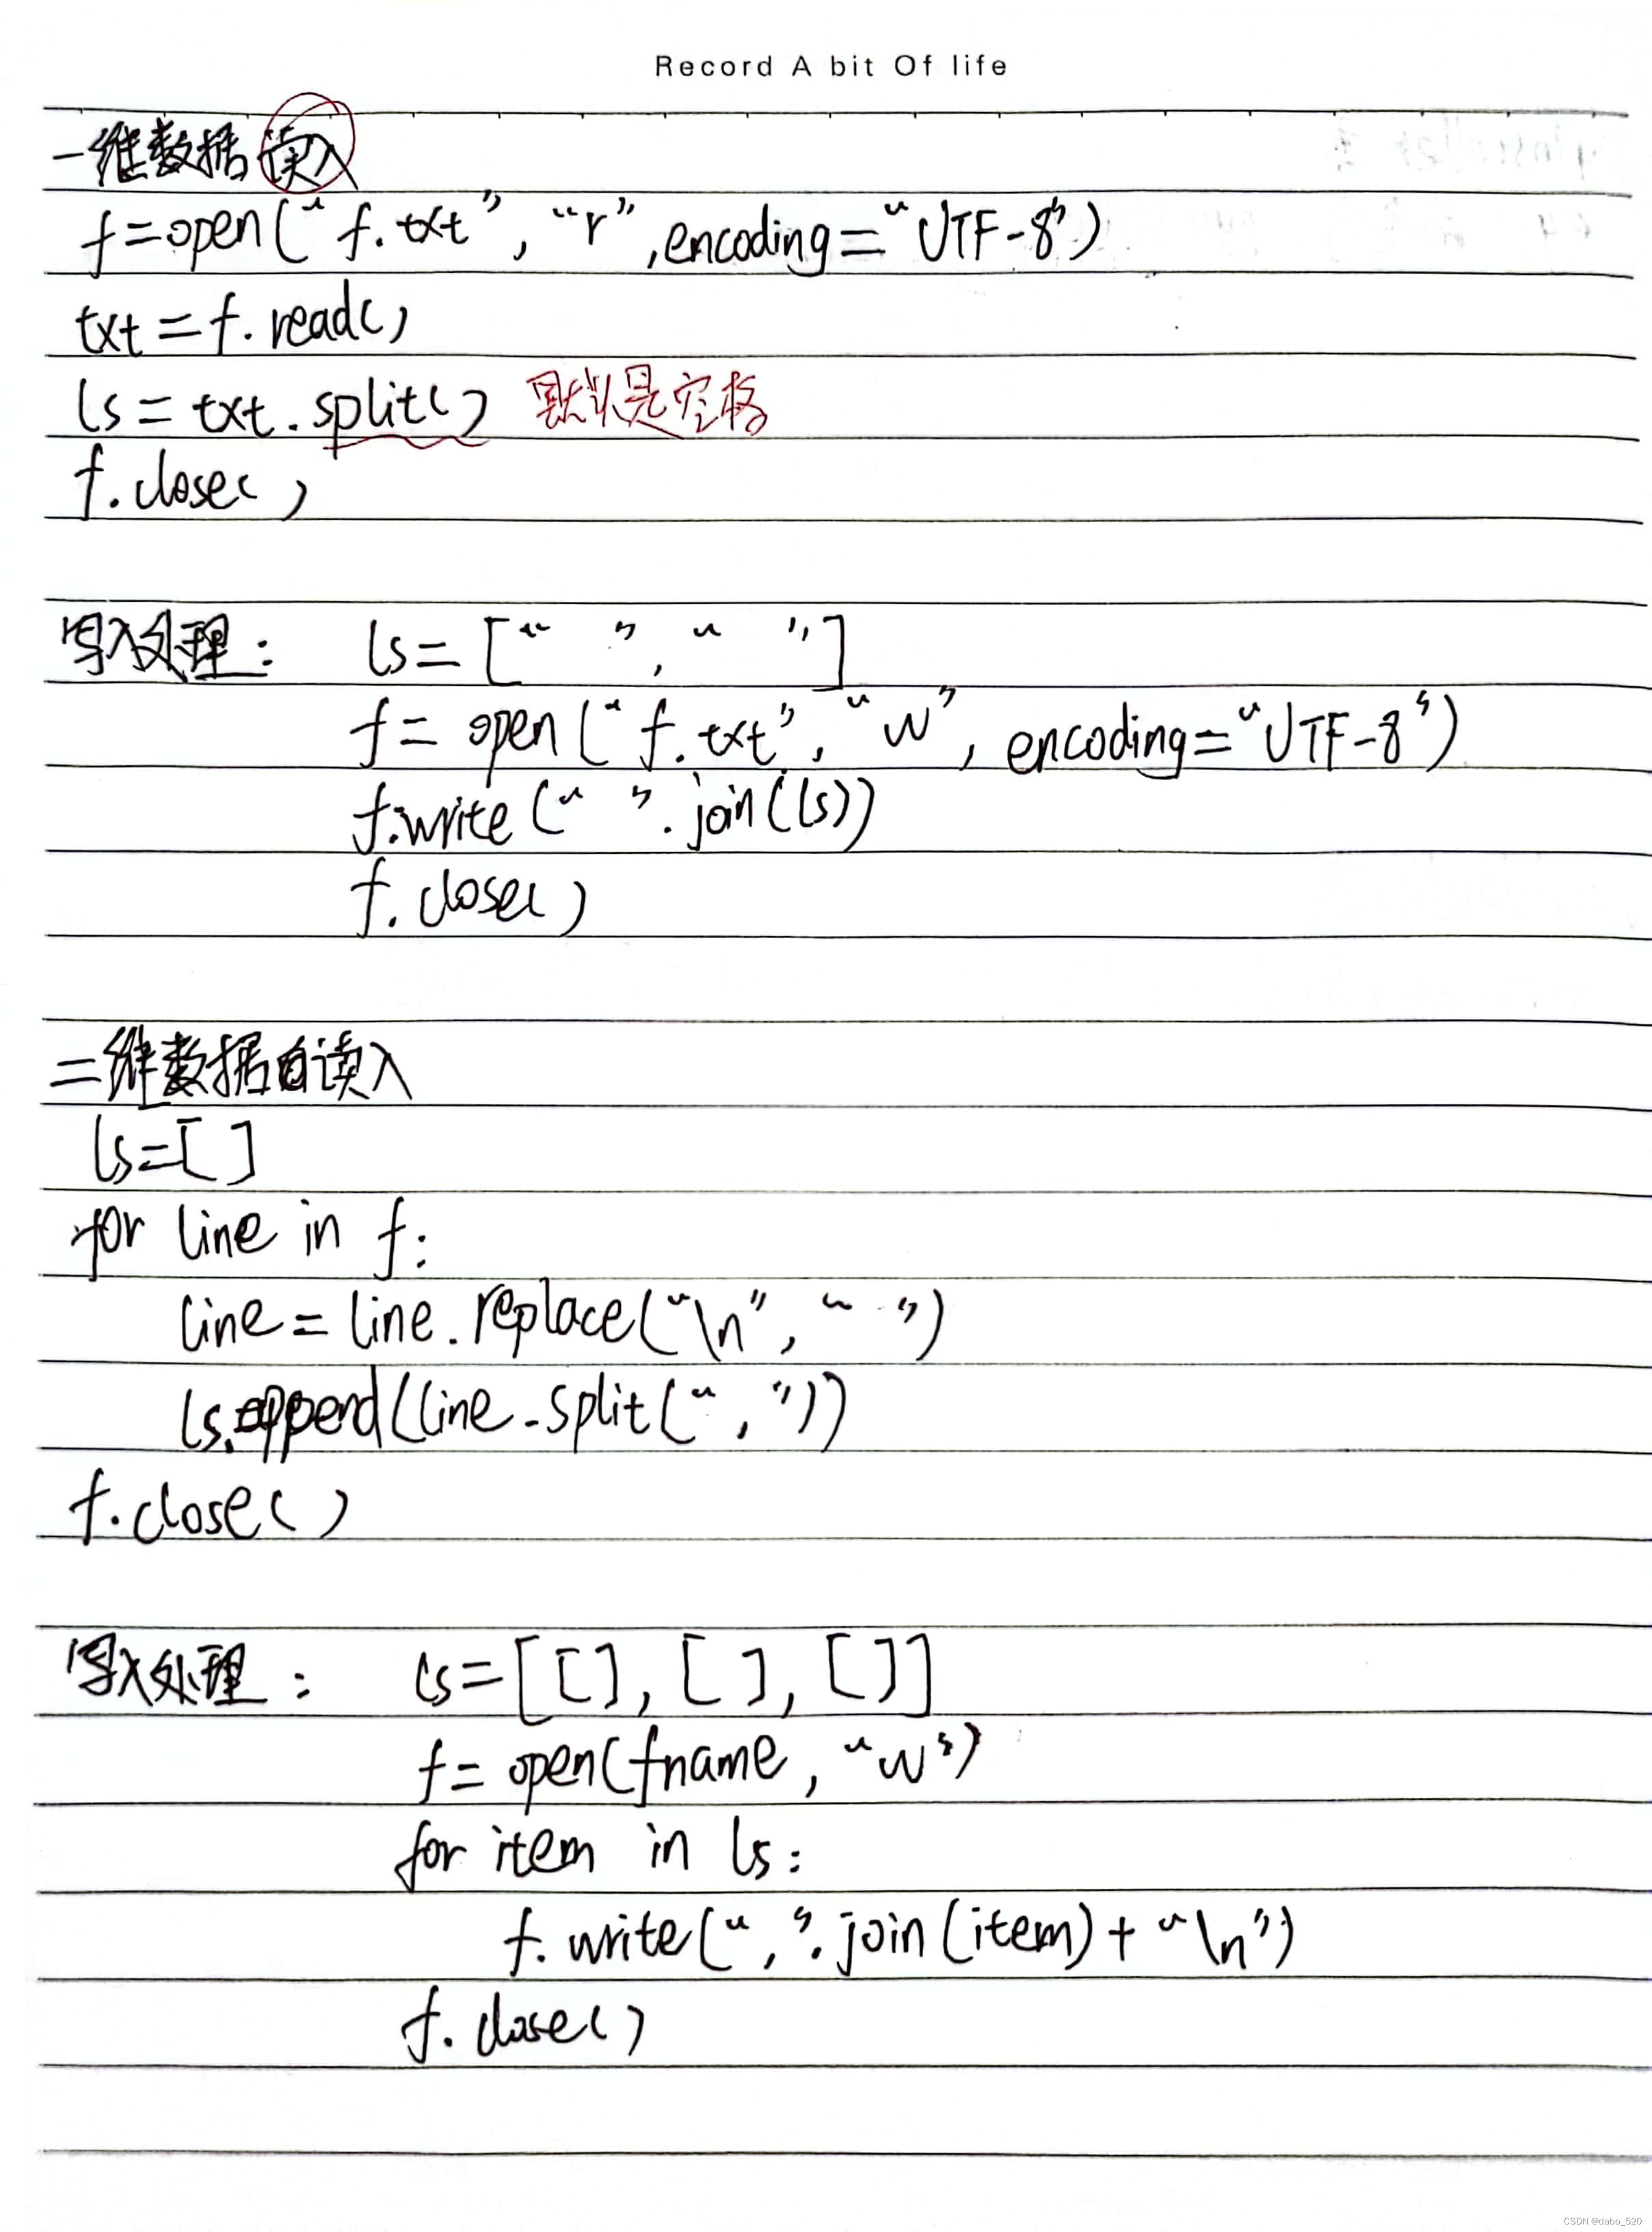 Record A bit Of life
一维数据读入
f=open("f.txt", "r", encoding="UTF-8")
txt=f.read()
ls=txt.split() 默认是空格
f.close()
写入处理: ls=[" ", " "]
f=open("f.txt", "w", encoding="UTF-8")
f.write(" ".join(ls))
f.close()
二维数据的读入
ls=[]
for line in f:
line=line.replace("\n", " ")
ls.append(line.split(","))
f.close()
写入处理: ls=[[], [], []]
f=open(fname, "w")
for item in ls:
f.write(",".join(item)+"\n")
f.close()
CSDN @dabo_520